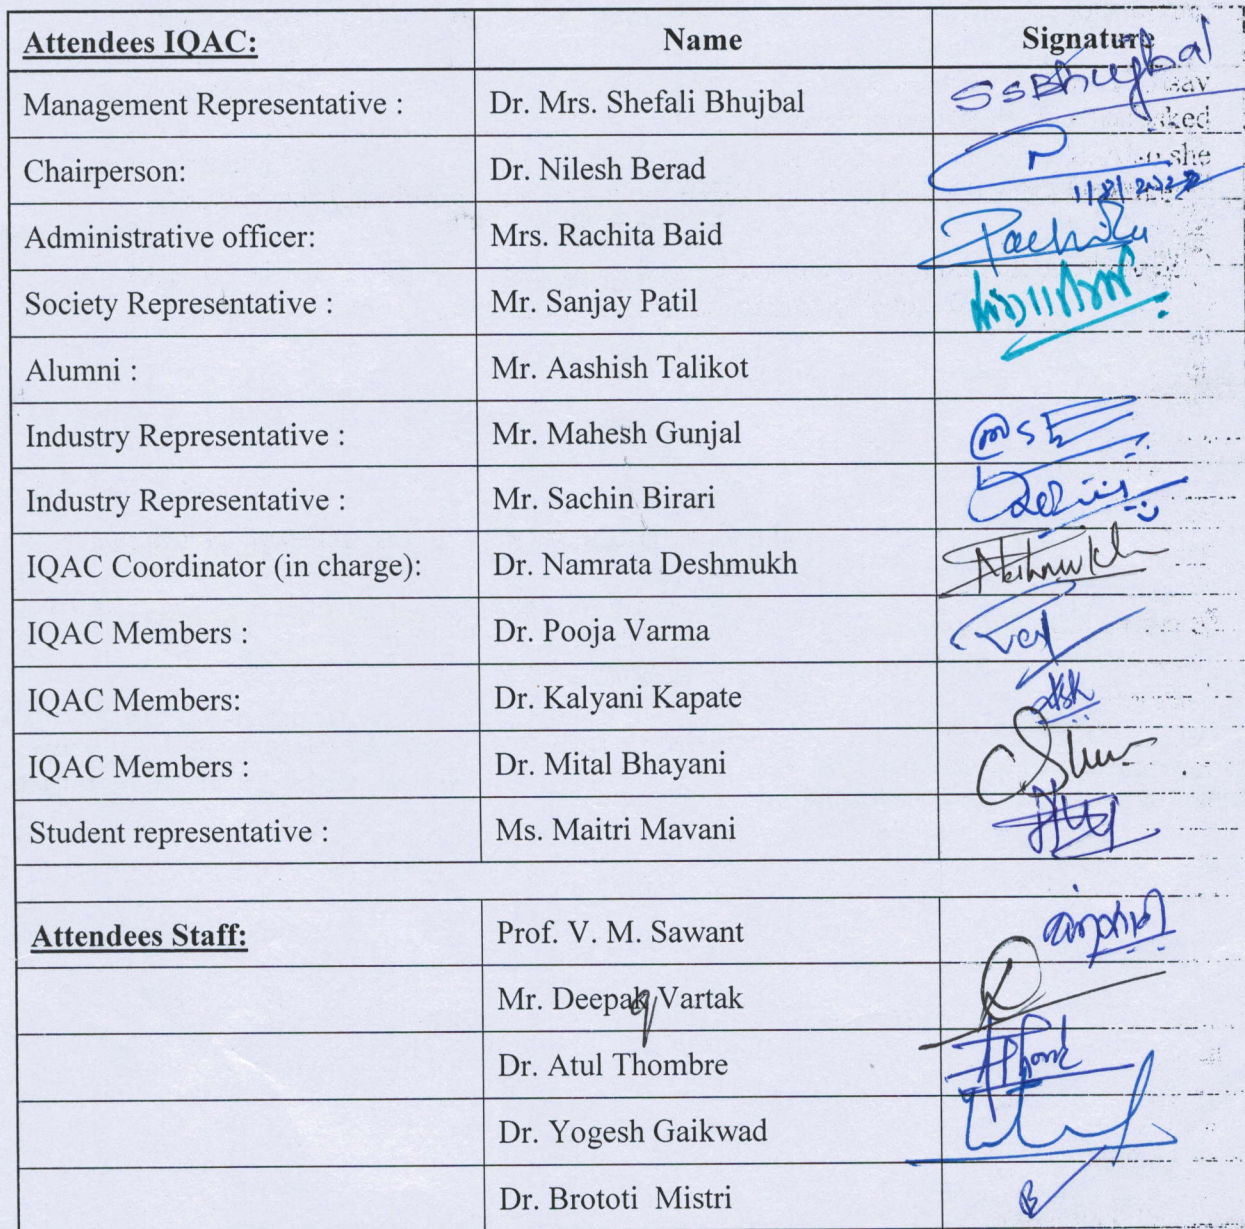 Attendees IQAC: Name Signature
Management Representative : Dr. Mrs. Shefali Bhujbal SSBhujbal
Chairperson: Dr. Nilesh Berad
1/8/2022
Administrative officer: Mrs. Rachita Baid Rachita
Society Representative : Mr. Sanjay Patil
Alumni : Mr. Aashish Talikot
Industry Representative : Mr. Mahesh Gunjal
Industry Representative : Mr. Sachin Birari
IQAC Coordinator (in charge): Dr. Namrata Deshmukh
IQAC Members : Dr. Pooja Varma
IQAC Members: Dr. Kalyani Kapate
IQAC Members : Dr. Mital Bhayani
Student representative : Ms. Maitri Mavani
Attendees Staff: Prof. V. M. Sawant
Mr. Deepak Vartak
Dr. Atul Thombre
Dr. Yogesh Gaikwad
Dr. Brototi Mistri